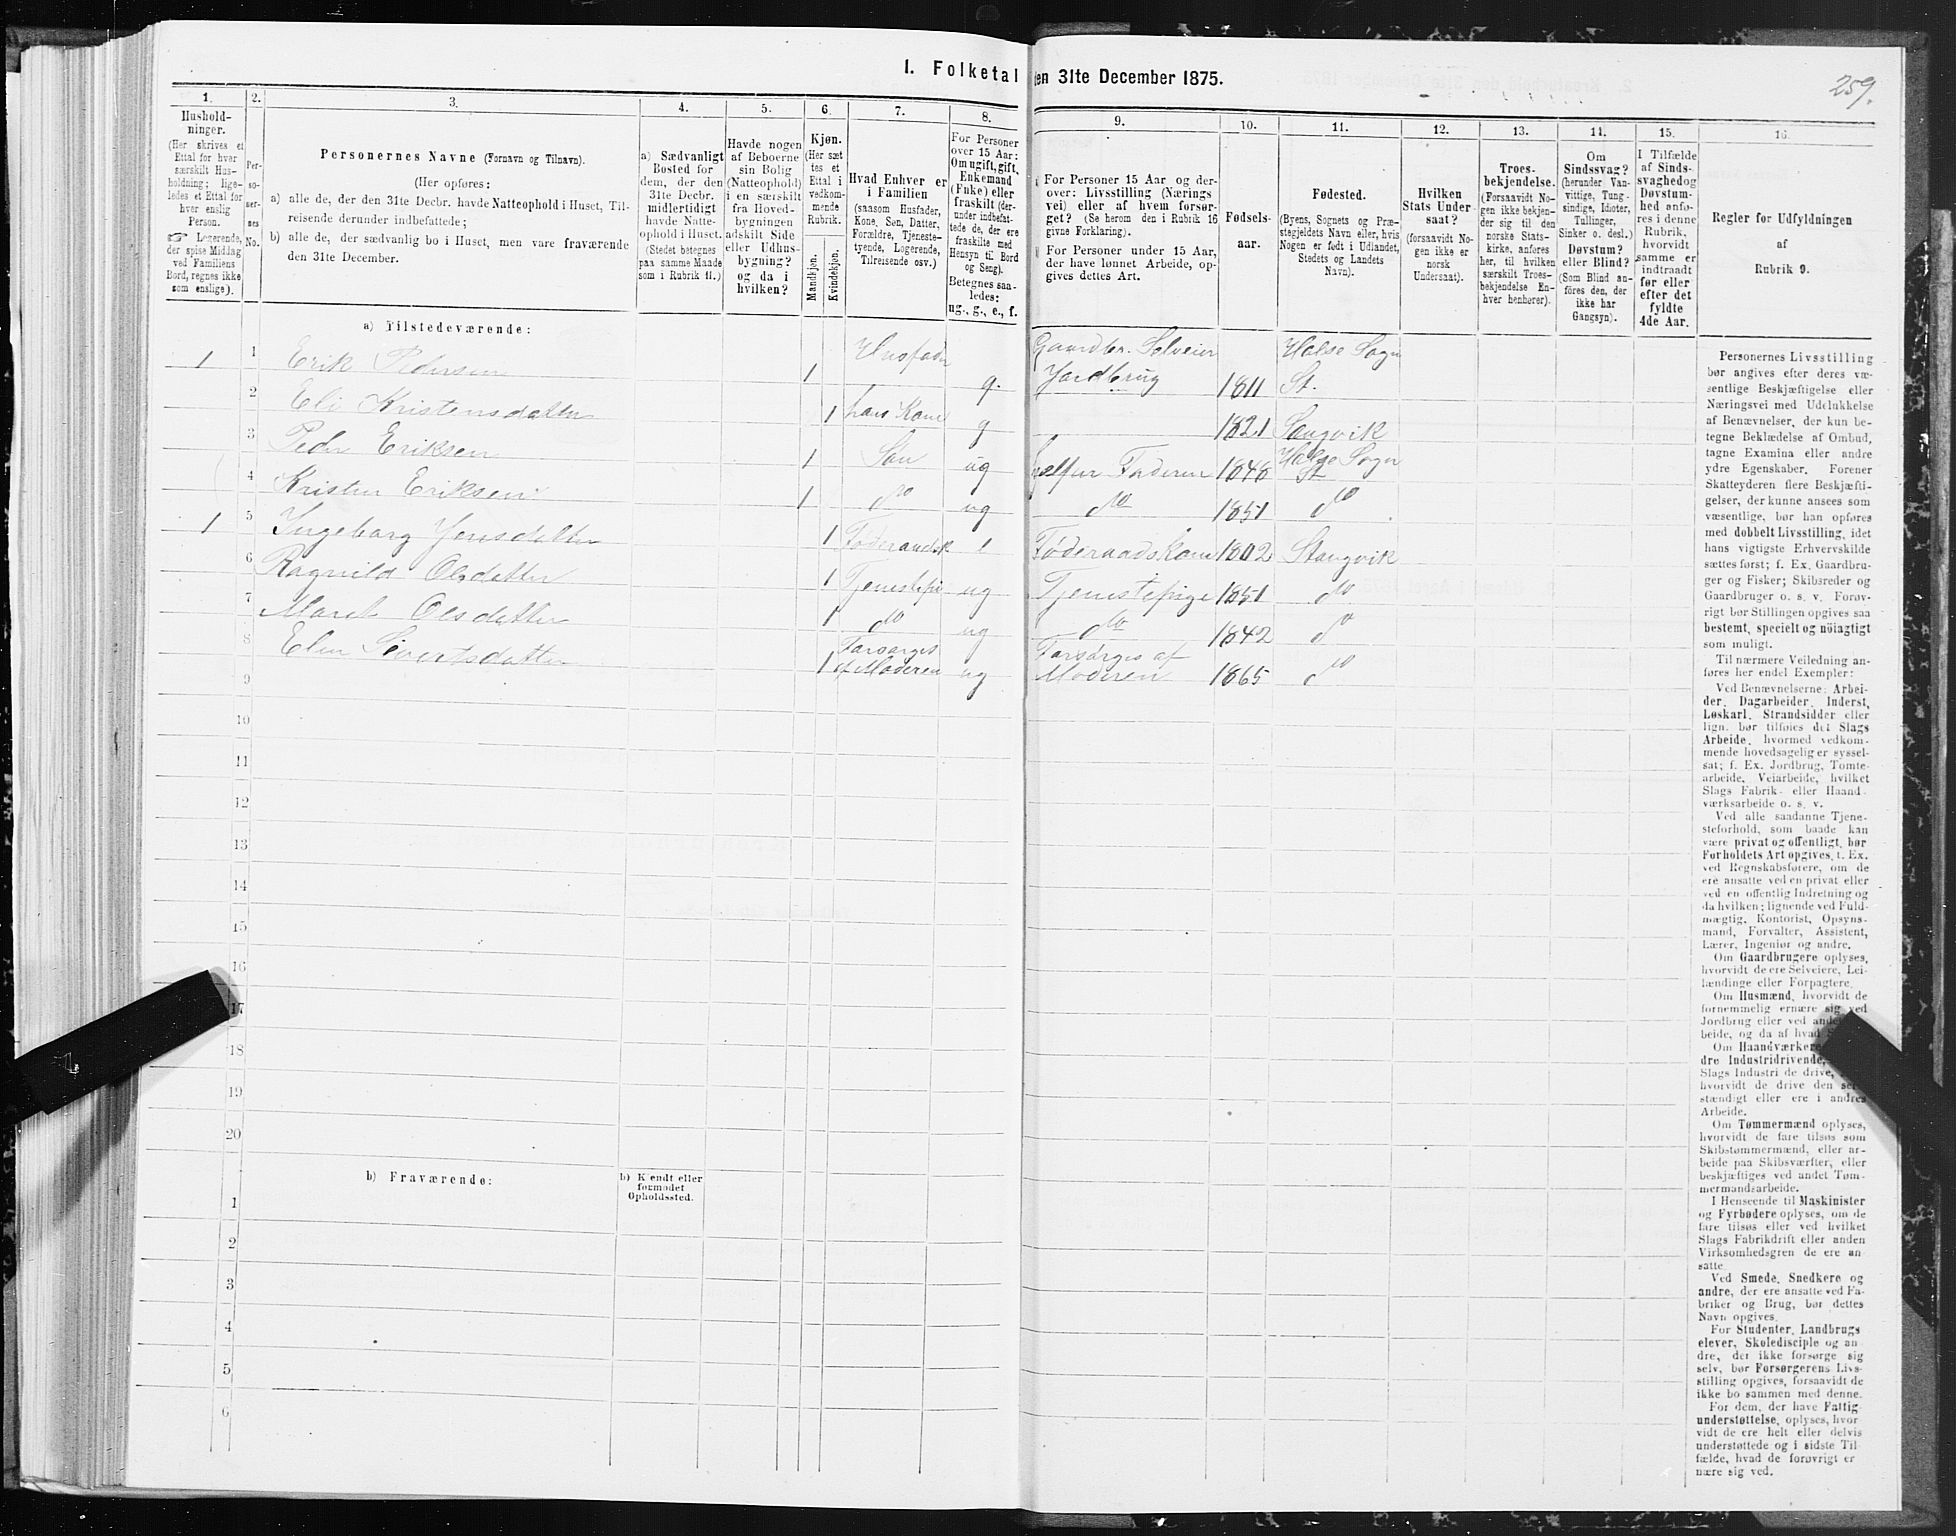 259.
1. Folketal
den 31te December 1875.
1. 2. 3. 4. 5. 6. 7. 8.
9. 10. 11. 12. 13. 14. 15. 16.
Hushold-
ninger.
(Her skrives et
Ettal for hver
særskilt Hus-
holdning; lige-
ledes et Ettal for
hver enslig
Person.
☞ Logerende,
der spise Middag
ved Familiens
Bord, regnes ikke
som enslige).
Per-
so-
ner-
nes
No.
Personernes Navne (Fornavn og Tilnavn).
(Her opføres:
a) alle de, der den 31te Decbr. havde Natteophold i Huset, Til-
reisende derunder indbefattede;
b) alle de, der sædvanlig bo i Huset, men vare fraværende
den 31te December.
a) Sædvanligt
Bosted for
dem, der den
31te Decbr.
midlertidigt
havde Natte-
ophold i Huset.
(Stedet betegnes
paa samme Maade
som i Rubrik 11.)
Havde nogen
af Beboerne
sin Bolig
(Natteophold)
i en særskilt
fra Hoved-
bygningen
adskilt Side
eller Udhus-
bygning?
og da i
hvilken?
Kjøn.
(Her sæt
tes et
Ettal i
vedkom-
mende
Rubrik.
Mandkjøn.
Kvindekjøn.
Hvad Enhver er
i Familien
(saasom Husfader,
Kone, Søn, Datter,
Forældre, Tjeneste-
tyende, Logerende,
Tilreisende osv.)
For Personer
over 15 Aar:
Om ugift, gift,
Enkemand
(Enke) eller
fraskilt (der-
under indbefat-
tede de, der ere
fraskilte med
Hensyn til Bord
og Seng).
Betegnes saa-
ledes:
ug., g., e., f.
For Personer 15 Aar og der-
over: Livsstilling (Nærings
vei) eller af hvem forsør-
get? (Se herom den i Rubrik 16
givne Forklaring).
For Personer under 15 Aar,
der have lønnet Arbeide, op-
gives dettes Art.
Fødsels-
aar.
Fødested.
(Byens, Sognets og Præ-
stegjeldets Navn eller, hvis
Nogen er født i Udlandet,
Stedets og Landets
Navn).
Hvilken
Stats Under
saat?
(forsaavidt No-
gen ikke er
norsk
Undersaat).
Troes-
bekjendelse.
(Forsaavidt No-
gen ikke bekjen-
der sig til den
norske Stats-
kirke, anføres
her, til hvilken
særskilt Troes-
bekjendelse En-
hver henhører).
Om
Sindssvag?
(herunder Van-
vittige, Tung-
sindige, Idioter,
Tullinger,
Sinker o. desl.)
Døvstum?
eller Blind?
(Som Blind an-
føres den, der
ikke har
Gangsyn).
I Tilfælde
af Sinds-
svaghed og
Døvstum-
hed anfø-
res i denne
Rubrik,
hvorvidt
samme er
indtraadt
før eller
efter det
fyldte
4de Aar.
Regler for Udfyldningen
af
Rubrik 9.
a) Tilstedeværende:
1 1 Erik Pedersen 1 Husfader g. Gaardbr. Selveier Jordbrug 1811 Halse Sogn St.
2 Eli Kristensdatter 1 hans Kone g 1821 Stangvik
3 Peder Eriksen 1 Søn ug hjælper Faderen 1848 Halse Sogn St
4 Kristen Eriksen 1 do ug do 1851 do
1 5 Ingeborg Jensdatter 1 Føderaadsk e Føderaadskone 1802 Stangvik
6 Ragnild Olsdatter 1 Tjenestepi ug Tjenestepige 1851 do
7 Maret Olsdatter 1 do ug do 1842 do
8 Elen Sivertsdatter 1 Forsørges af Moderen ug Forsørges af Moderen 1865 do
9
10
11
12
13
14
15
16
17
18
19
20
b) Fraværende:
b) Kendt eller
formodet
Opholdssted.
1
2
3
4
5
6
Personernes Livsstilling
bør angives efter deres væ-
sentlige Beskjæftigelse eller
Næringsvei med Udelukkelse
af Benævnelser, der kun be-
tegne Beklædelse af Ombud,
tagne Examina eller andre
ydre Egenskaber. Forener
Skatteyderen flere Beskjæfti-
gelser, der kunne ansees som
væsentlige, bør han opføres
med dobbelt Livsstilling, idet
hans vigtigste Erhvervskilde
sættes først; f. Ex. Gaardbru-
ger og Fisker; Skibsreder og
Gaardbruger o. s. v. Forøv-
rigt bør Stillingen opgives saa
bestemt, specielt og nöiagtigt
som muligt.
Til nærmere Veiledning an-
føres her endel Exempler:
Ved Benævnelserne: Arbei-
der, Dagarbeider, Inderst,
Løskarl, Strandsidder eller
lign. bør tilføies det Slags
Arbeide, hvormed vedkom-
mende hovedsagelig er syssel-
sat; f. Ex. Jordbrug, Tomte-
arbeide, Veiarbeide, hvilket
Slags Fabrik- eller Haand-
værksarbeide o. s. v.
Ved alle saadanne Tjene-
steforhold, som baade kan
være privat og offentligt, bør
Forholdets Art opgives, f. Ex.
ved Regnskabsførere, om de
ere ansatte ved en privat eller
ved en offentlig Indretning og
da hvilken; lignende ved Fuld-
mægtig, Kontorist, Opsyns-
mand, Forvalter, Assistent,
Lærer, Ingeniør og andre.
Om Gaardbrugere oplyses,
hvorvidt de ere Selveiere, Lei-
lændinge eller Forpagtere.
Om Husmænd, hvorvidt de
fornemmelig ernære sig ved
Jordbrug eller ved andet
beide, og da af hvad
Om Haandværkere
dre Industridrivende,
Slags Industri de drive,
hvorvidt de drive den
stændigt eller ere i andres
Arbeide.
Om Tømmermænd oplyses,
hvorvidt de fare tilsøs som
Skibstømmermænd, eller ar-
beide paa Skibsværfter, eller
beskjæftiges ved andet Tøm-
mermandsarbeide.
I Henseende til Maskinister
og Fyrbødere oplyses, om de
fare tilsøs eller ved hvilket
Slags Fabrikdrift eller anden
Virksomhedsgren de ere an
satte.
Ved Smede, Snedkere og
andre, der ere ansatte ved Fa-
briker og Brug, bør dettes
Navn opgives.
For Studenter, Landbrugs
elever, Skoledisciple og an
dre, der ikke forsørge sig
selv, bør Forsørgerens Livs-
stilling opgives, forsaavidt de
ikke bo sammen med denne.
For dem, der have Fattig
understøttelse, oplyses, hvor
vidt de ere helt eller delvis
understøttede og i sidste Til-
fælde, hvad de forøvrigt er
nære sig ved.